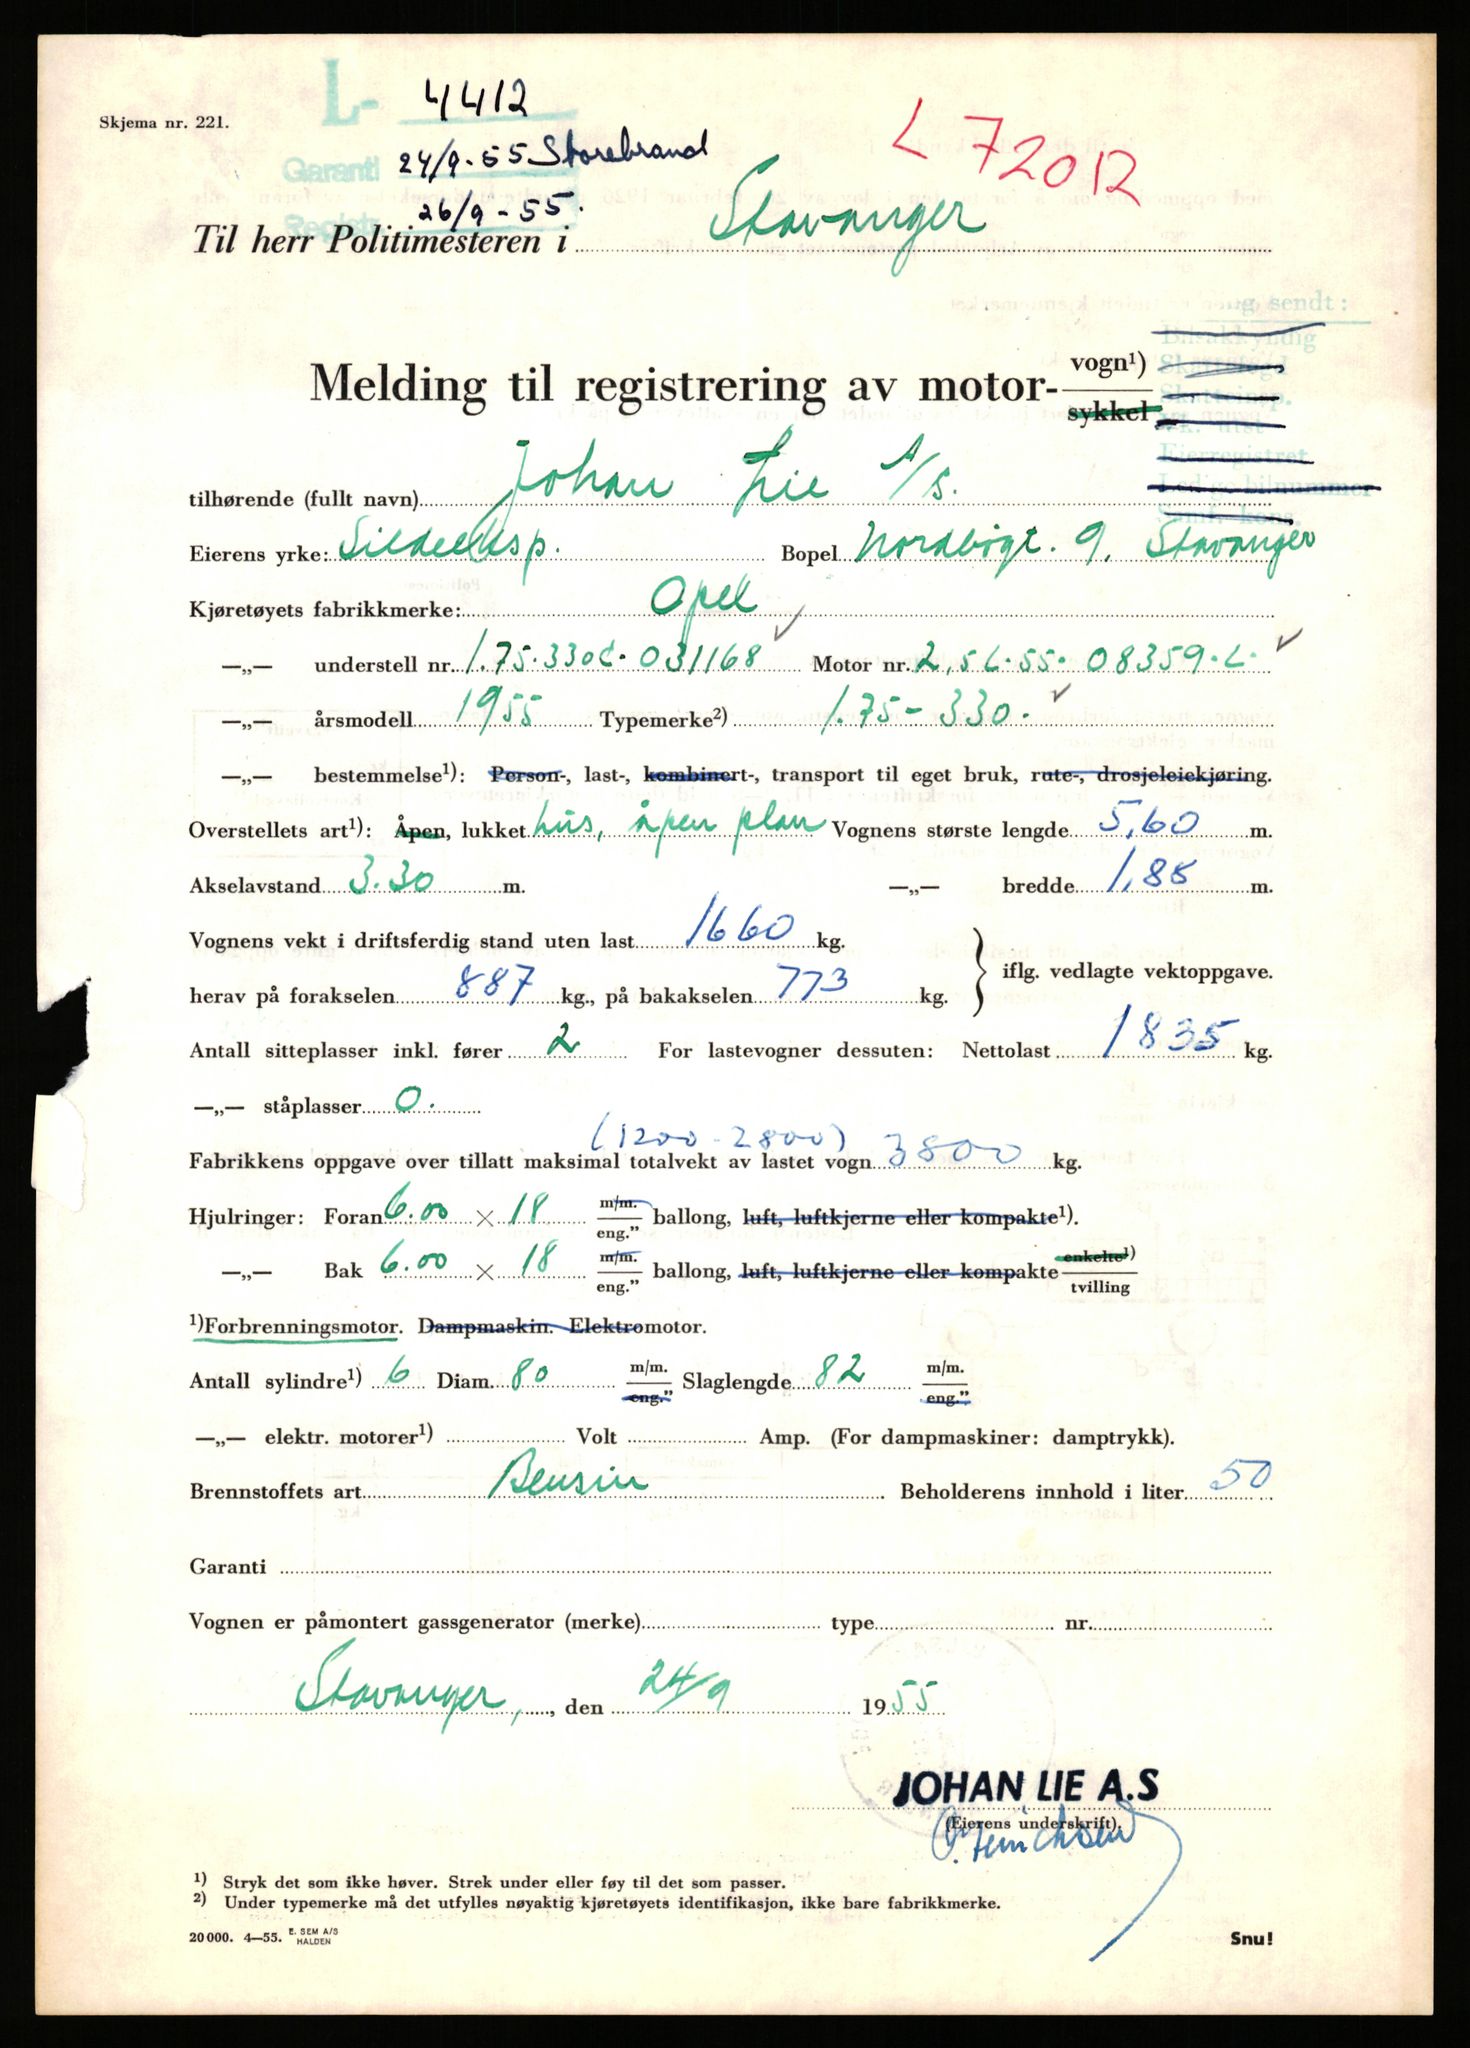 Skjema nr. 221.
L- 4412
L 72012
Garanti 24/9-55 Storebrand
Registr. 26/9-55.
Til herr Politimesteren i Stavanger
ng sendt:
Bilsakkyndig
Melding til registrering av motor- vogn¹)
sykkel
Eierregistret
tilhørende (fullt navn) Johan Lie A/S.
Eierens yrke: Sildeeksp. Bopel Nordbøgt. 9, Stavanger
Kjøretøyets fabrikkmerke: Opel
—„— understell nr. 1.75-330C-031168 Motor nr. 2,5L-55-08359-L-
—„— årsmodell 1955 Typemerke²) 1.75-330.
—„— bestemmelse¹): Person-, last-, kombinert-, transport til eget bruk, rute-, drosjeleiekjøring.
Overstellets art¹): Åpen, lukket hus, åpen plan Vognens største lengde 5,60 m.
Akselavstand 3.30 m. —„— bredde 1,85 m.
Vognens vekt i driftsferdig stand uten last 1660 kg.
iflg. vedlagte vektoppgave.
herav på forakselen 887 kg., på bakakselen 773 kg.
Antall sitteplasser inkl. fører 2 For lastevogner dessuten: Nettolast 1835 kg.
—„— ståplasser 0.
(1200-2800)
Fabrikkens oppgave over tillatt maksimal totalvekt av lastet vogn 3800 kg.
Hjulringer: Foran 6.00 × 18 m/m. eng." ballong, luft, luftkjerne eller kompakte¹).
—„— Bak 6.00 × 18 m/m. eng." ballong, luft, luftkjerne eller kompakte enkelte¹) tvilling
¹)Forbrenningsmotor. Dampmaskin. Elektromotor.
Antall sylindre¹) 6 Diam. 80 m/m. eng." Slaglengde 82 m/m. eng."
—„— elektr. motorer¹) Volt Amp. (For dampmaskiner: damptrykk).
Brennstoffets art Bensin Beholderens innhold i liter 50
Garanti
Vognen er påmontert gassgenerator (merke) type nr.
Stavanger, den 24/9 1955
JOHAN LIE A.S
(Eierens underskrift).
¹) Stryk det som ikke høver. Strek under eller føy til det som passer.
²) Under typemerke må det utfylles nøyaktig kjøretøyets identifikasjon, ikke bare fabrikkmerke.
20000. 4—55. E. SEM A/S HALDEN
Snu!